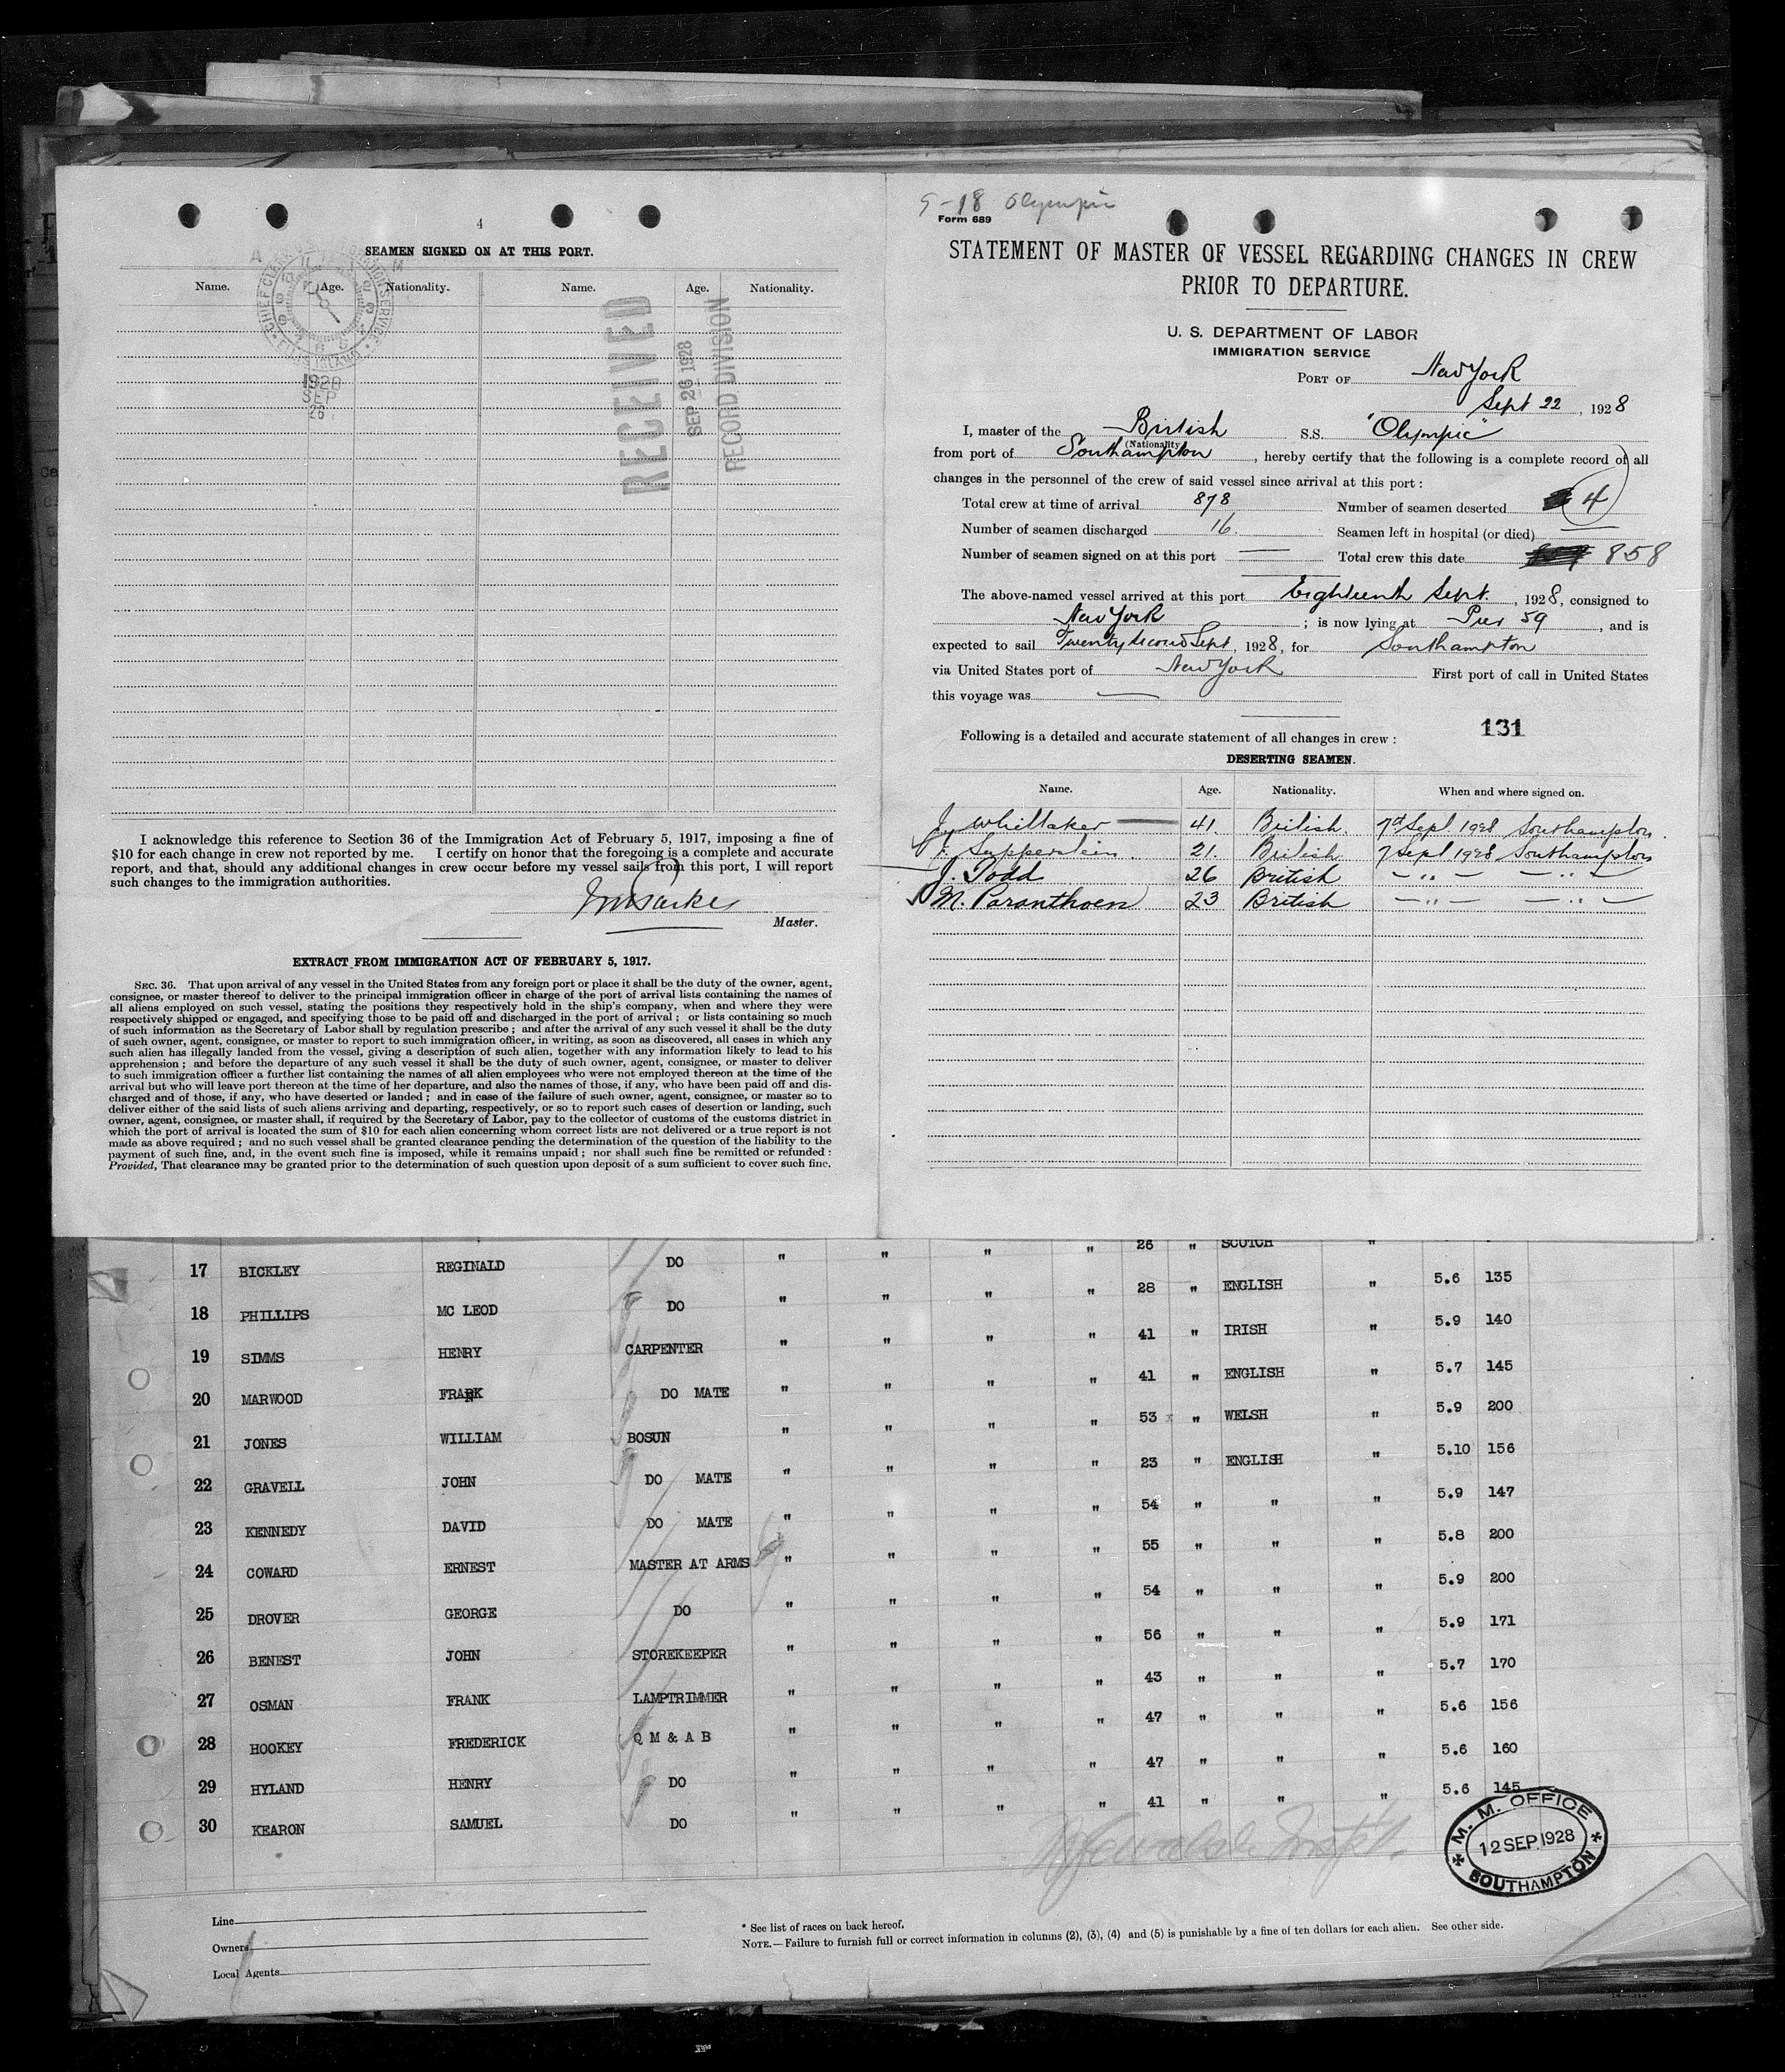 4
SEAMEN SIGNED ON AT THIS PORT.
Name. Age. Nationality. Name. Age. Nationality.
CHIEF CLERK IMMIGRATION SERVICE
ELLIS ISLAND
1928
SEP
26
RECEIVED
SEP 26 1928
RECORD DIVISION
I acknowledge this reference to Section 36 of the Immigration Act of February 5, 1917, imposing a fine of
$10 for each change in crew not reported by me. I certify on honor that the foregoing is a complete and accurate
report, and that, should any additional changes in crew occur before my vessel sails from this port, I will report
such changes to the immigration authorities.
Master.
EXTRACT FROM IMMIGRATION ACT OF FEBRUARY 5, 1917.
SEC. 36. That upon arrival of any vessel in the United States from any foreign port or place it shall be the duty of the owner, agent,
consignee, or master thereof to deliver to the principal immigration officer in charge of the port of arrival lists containing the names of
all aliens employed on such vessel, stating the positions they respectively hold in the ship's company, when and where they were
respectively shipped or engaged, and specifying those to be paid off and discharged in the port of arrival ; or lists containing so much
of such information as the Secretary of Labor shall by regulation prescribe ; and after the arrival of any such vessel it shall be the duty
of such owner, agent, consignee, or master to report to such immigration officer, in writing, as soon as discovered, all cases in which any
such alien has illegally landed from the vessel, giving a description of such alien, together with any information likely to lead to his
apprehension ; and before the departure of any such vessel it shall be the duty of such owner, agent, consignee, or master to deliver
to such immigration officer a further list containing the names of all alien employees who were not employed thereon at the time of the
arrival but who will leave port thereon at the time of her departure, and also the names of those, if any, who have been paid off and dis-
charged and of those, if any, who have deserted or landed ; and in case of the failure of such owner, agent, consignee, or master so to
deliver either of the said lists of such aliens arriving and departing, respectively, or so to report such cases of desertion or landing, such
owner, agent, consignee, or master shall, if required by the Secretary of Labor, pay to the collector of customs of the customs district in
which the port of arrival is located the sum of $10 for each alien concerning whom correct lists are not delivered or a true report is not
made as above required ; and no such vessel shall be granted clearance pending the determination of the question of the liability to the
payment of such fine, and, in the event such fine is imposed, while it remains unpaid ; nor shall such fine be remitted or refunded :
Provided, That clearance may be granted prior to the determination of such question upon deposit of a sum sufficient to cover such fine.
9-18 Olympic
Form 689
STATEMENT OF MASTER OF VESSEL REGARDING CHANGES IN CREW
PRIOR TO DEPARTURE.
U. S. DEPARTMENT OF LABOR
IMMIGRATION SERVICE
PORT OF New York
Sept 22, 1928
I, master of the British S.S. "Olympic"
(Nationality)
from port of Southampton, hereby certify that the following is a complete record of all
changes in the personnel of the crew of said vessel since arrival at this port :
Total crew at time of arrival 878 Number of seamen deserted 4
Number of seamen discharged 16. Seamen left in hospital (or died) —
Number of seamen signed on at this port — Total crew this date 858
The above-named vessel arrived at this port Eighteenth Sept., 1928, consigned to
New York ; is now lying at Pier 59, and is
expected to sail Twenty second Sept, 1928, for Southampton
via United States port of New York First port of call in United States
this voyage was —
131
Following is a detailed and accurate statement of all changes in crew :
DESERTING SEAMEN.
Name. Age. Nationality. When and where signed on.
J. Whittaker 41. British. 7th Sept 1928 Southampton.
J. Supperstein. 21. British 7 Sept 1928 Southampton
J. Todd 26 British — " — — " —
M. Paranthoen 23 British — " — — " —
26 " SCOTCH "
17 BICKLEY REGINALD DO " " " " 28 " ENGLISH " 5.6 135
18 PHILLIPS MC LEOD DO " " " " 41 " IRISH " 5.9 140
19 SIMMS HENRY CARPENTER " " " " 41 " ENGLISH " 5.7 145
20 MARWOOD FRANK DO MATE " " " " 53 " WELSH " 5.9 200
21 JONES WILLIAM BOSUN " " " " 23 " ENGLISH " 5.10 156
22 GRAVELL JOHN DO MATE " " " " 54 " " " 5.9 147
23 KENNEDY DAVID DO MATE " " " " 55 " " " 5.8 200
24 COWARD ERNEST MASTER AT ARMS " " " " 54 " " " 5.9 200
25 DROVER GEORGE DO " " " " 56 " " " 5.9 171
26 BENEST JOHN STOREKEEPER " " " " 43 " " " 5.7 170
27 OSMAN FRANK LAMPTRIMMER " " " " 47 " " " 5.6 156
28 HOOKEY FREDERICK Q M & A B " " " " 47 " " " 5.6 160
29 HYLAND HENRY DO " " " " 41 " " " 5.6 145
30 KEARON SAMUEL DO
M. M. OFFICE
12 SEP 1928
SOUTHAMPTON
Line
Owners
Local Agents
* See list of races on back hereof.
NOTE.—Failure to furnish full or correct information in columns (2), (3), (4) and (5) is punishable by a fine of ten dollars for each alien. See other side.